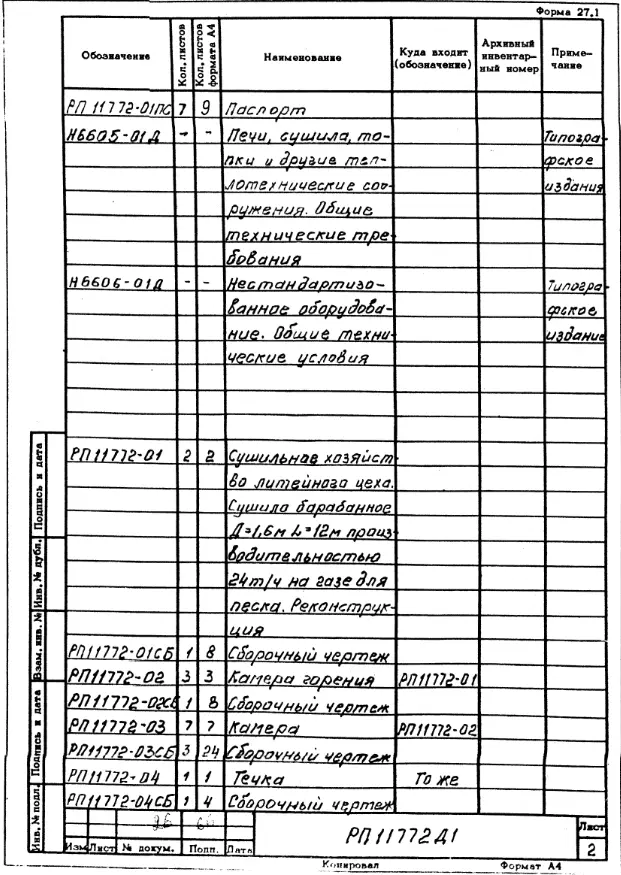 Форма 27.1
Обозначение Кол. листов Кол. листов формата А4 Наименование Куда входит (обозначение) Архивный инвентар- ный номер Приме- чание
РП 11772-01ПС 7 9 Паспорт
Н6605-01Д - - Печи, сушила, то- Типогра-
пки и другие теп- фское
лотехнические соо- издания
ружения. Общие
технические тре-
бования
Н6606-01Д - - Нестандартизо- Типогра-
ванное оборудова- фское
ние. Общие техни- издание
ческие условия
РП11772-01 2 2 Сушильное хозяйст
во литейного цеха.
Сушила барабанное
Д=1,6м L=12м произ-
водительностью
24т/ч на газе для
песка. Реконструк-
ция
РП11772-01СБ 1 8 Сборочный чертеж
РП11772-02 3 3 Камера горения РП11772-01
РП11772-02СБ 1 8 Сборочный чертеж
РП11772-03 7 7 Камера РП11772-02
РП11772-03СБ 3 24 Сборочный чертеж
РП11772-04 1 1 Течка То же
РП11772-04СБ 1 4 Сборочный чертеж
Инв. № подл. Подпись и дата Взам. инв. № Инв. № дубл. Подпись и дата
Изм Лист № докум. Подп. Дата
РП11772Д1
Лист
2
Копировал Формат А4